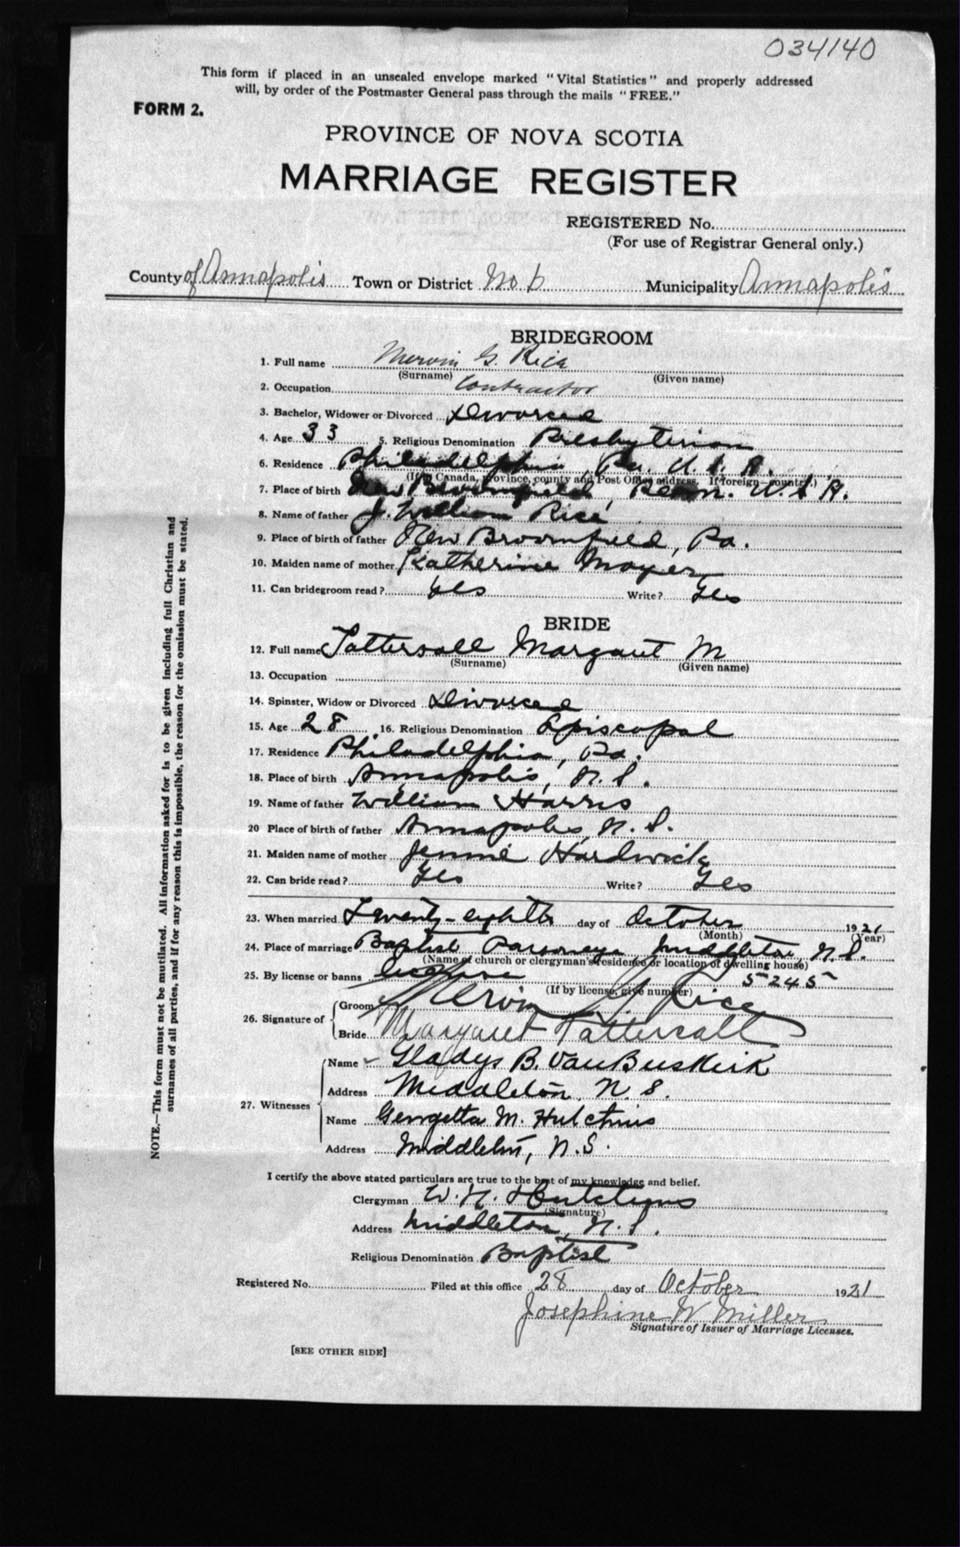 034140
This form if placed in an unsealed envelope marked "Vital Statistics" and properly addressed
will, by order of the Postmaster General pass through the mails "FREE."
FORM 2.
PROVINCE OF NOVA SCOTIA
MARRIAGE REGISTER
REGISTERED No.
(For use of Registrar General only.)
County of Annapolis Town or District No 6 Municipality Annapolis
BRIDEGROOM
1. Full name Mervin G. Rice
(Surname) (Given name)
2. Occupation Contractor
3. Bachelor, Widower or Divorced Divorced
4. Age 33 5. Religious Denomination Presbyterian
6. Residence Philadelphia, Pa. U.S.A.
(If in Canada, province, county and Post Office address. If foreign—country.)
7. Place of birth New Bloomfield, Penn. U.S.A.
8. Name of father J. William Rice
9. Place of birth of father New Broomfield, Pa.
10. Maiden name of mother Katherine Moyer
11. Can bridegroom read? Yes Write? Yes
BRIDE
12. Full name Tattersall Margaret M
(Surname) (Given name)
13. Occupation
14. Spinster, Widow or Divorced Divorced
15. Age 28 16. Religious Denomination Episcopal
17. Residence Philadelphia, Pa.
18. Place of birth Annapolis, N.S.
19. Name of father William Harris
20 Place of birth of father Annapolis, N.S.
21. Maiden name of mother Jennie Hardwick
22. Can bride read? Yes Write? Yes
23. When married Twenty-eighth day of October 1921
(Month) (Year)
24. Place of marriage Baptist Parsonage Middleton, N.S.
(Name of church or clergyman's residence or location of dwelling house)
25. By license or banns license 5245
(If by license, give number)
26. Signature of
Groom Mervin G. Rice
Bride Margaret Tattersall
27. Witnesses
Name Gladys B. VanBuskirk
Address Middleton, N.S.
Name Georgetta M. Hutchins
Address Middleton, N.S.
I certify the above stated particulars are true to the best of my knowledge and belief.
Clergyman W. H. Hutchins
(Signature)
Address Middleton, N.S.
Religious Denomination Baptist
Registered No. Filed at this office 28 day of October 1921
Josephine W Miller
Signature of Issuer of Marriage Licenses.
[SEE OTHER SIDE]
NOTE.—This form must not be mutilated. All information asked for is to be given including full Christian and
surnames of all parties, and if for any reason this is impossible, the reason for the omission must be stated.